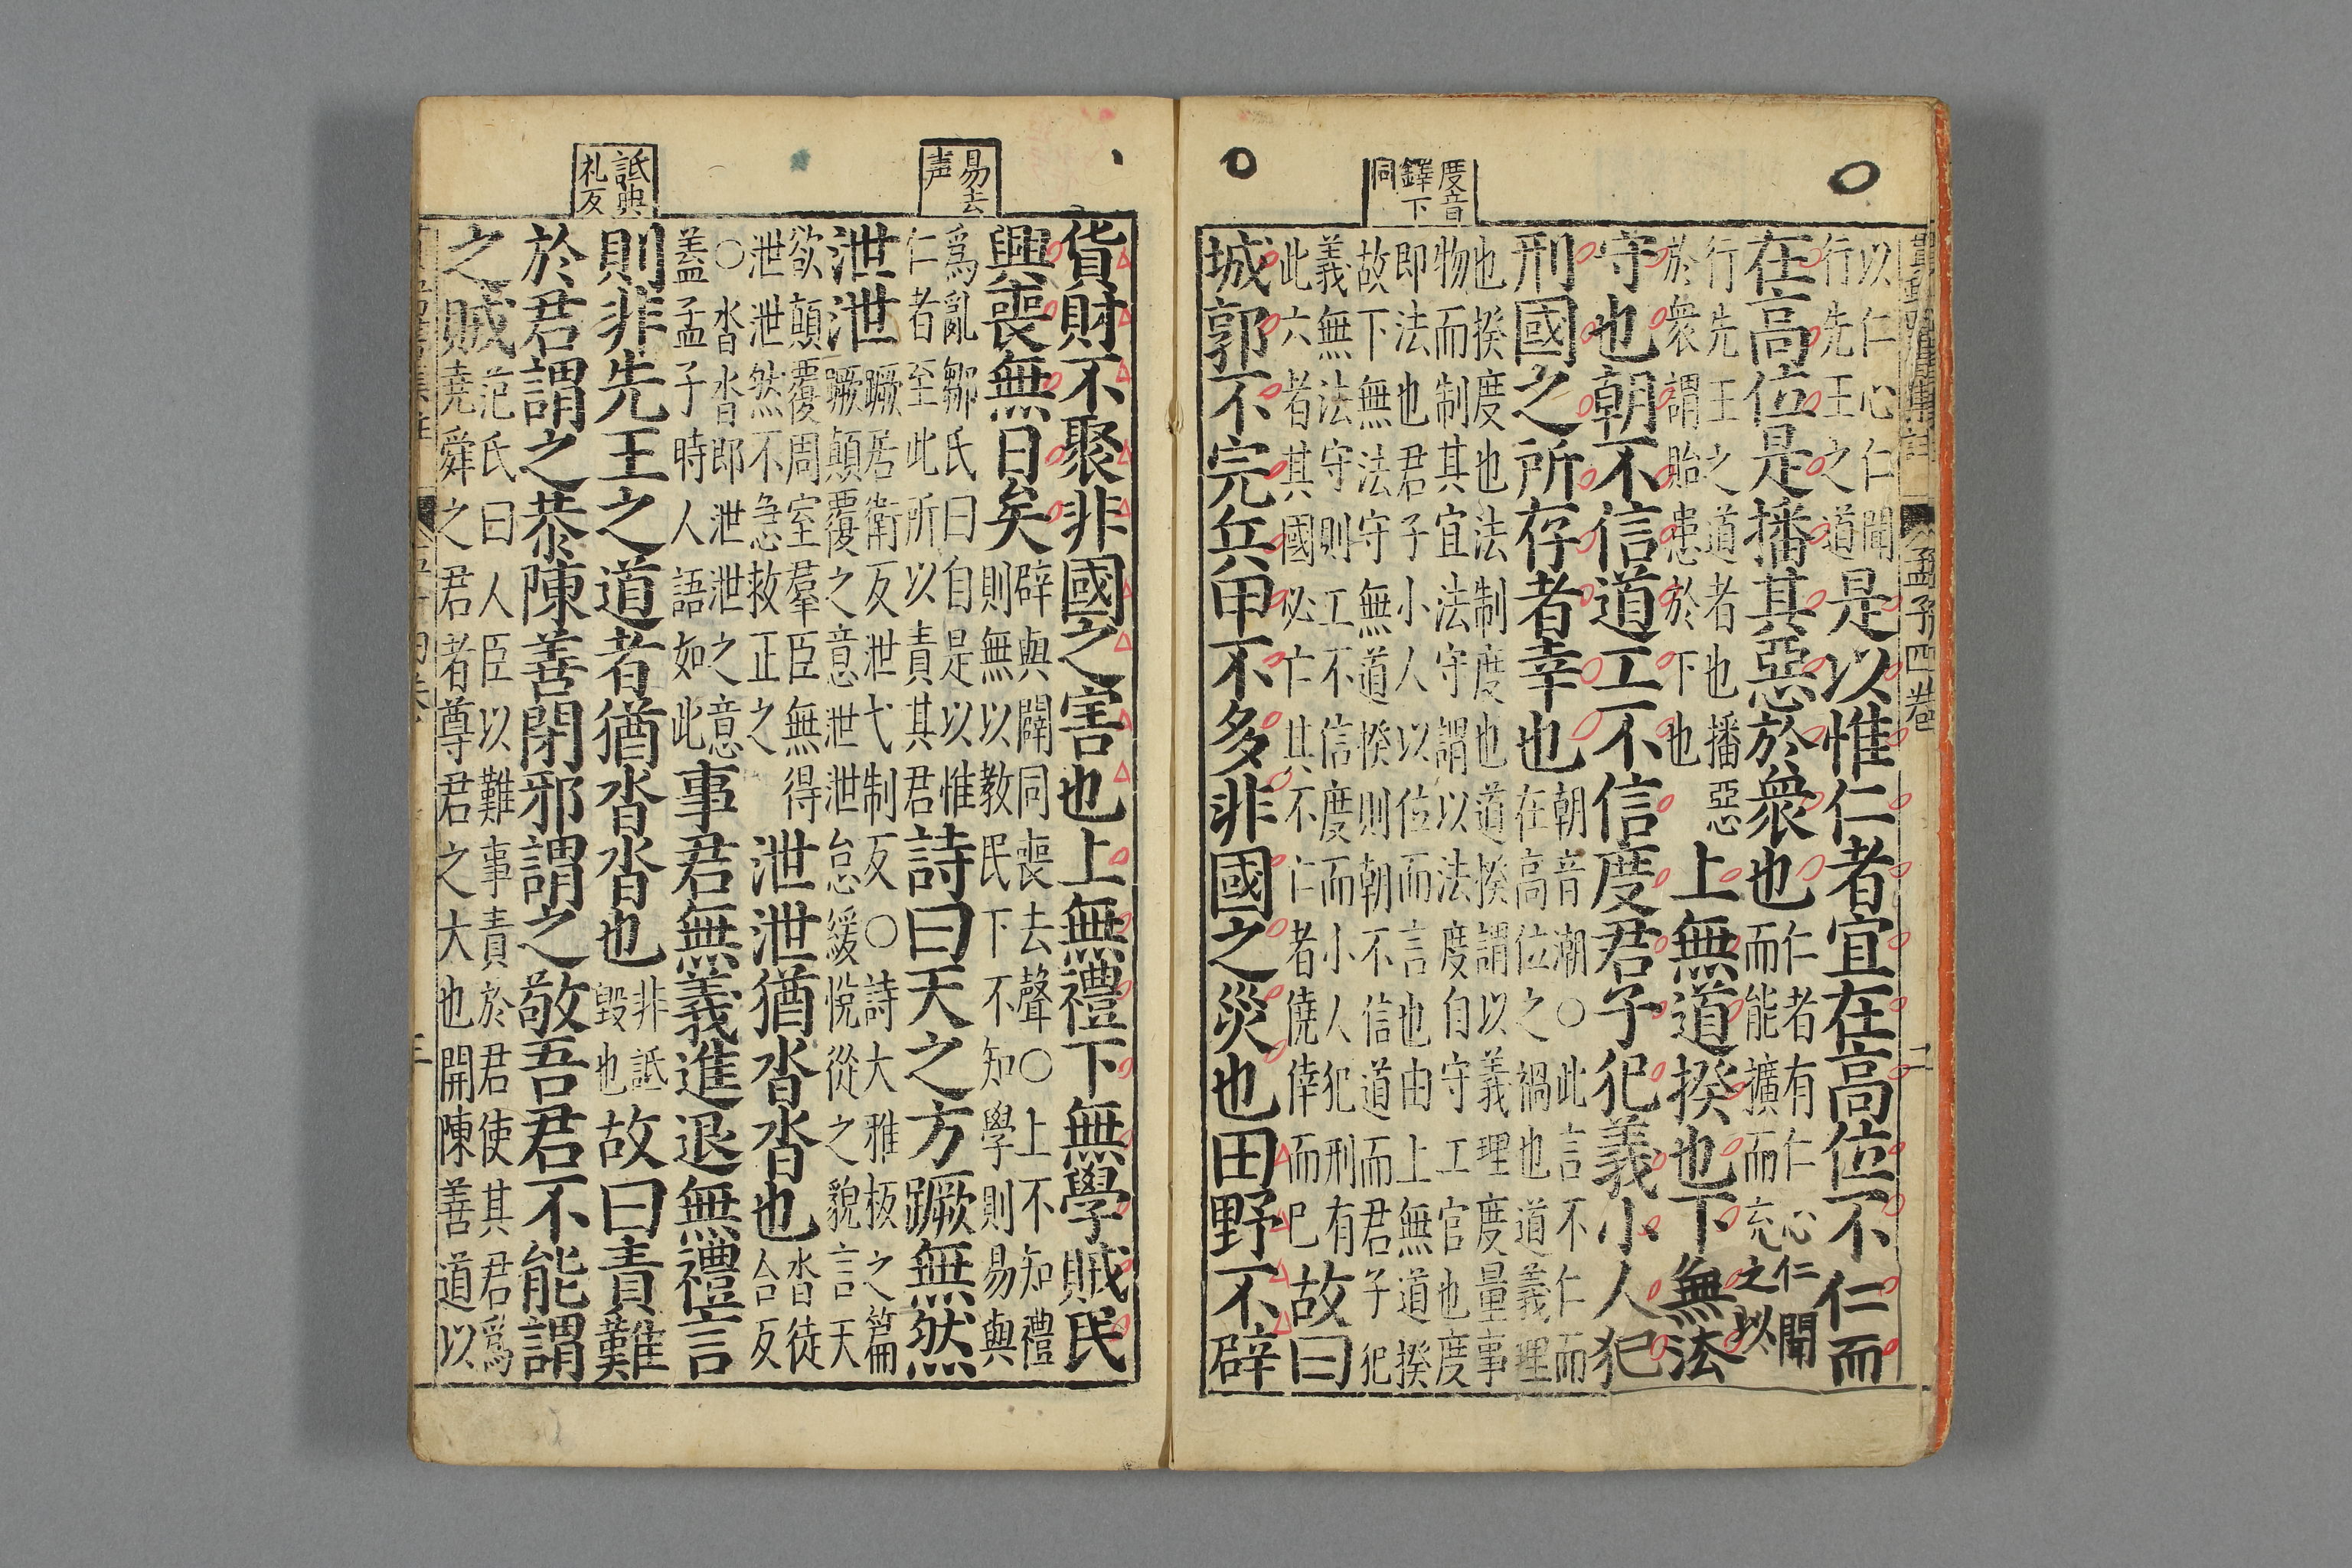 孟子四卷
二
度音
鐸下
同
以仁心仁聞
行先王之道
是以惟仁者宜在高位不仁而
在高位是播其惡於衆也
仁者有仁心仁聞
而能擴而充之以
行先王之道者也播惡
於衆謂貽患於下也
上無道揆也下無法
守也朝不信道工不信度君子犯義小人犯
刑國之所存者幸也
朝音潮○此言不仁而
在高位之禍也道義理
也揆度也法制度也道揆謂以義理度量事
物而制其宜法守謂以法度自守工官也度
即法也君子小人以位而言也由上無道揆
故下無法守無道揆則朝不信道而君子犯
義無法守則工不信度而小人犯刑有
此六者其國必亡其不仁者僥倖而已
故曰
城郭不完兵甲不多非國之災也田野不辟
易去
声
詆典
礼反
貨財不聚非國之害也上無禮下無學賊民
興喪無日矣
辟與闢同喪去聲○上不知禮
則無以教民下不知學則易與
爲亂鄒氏曰自是以惟
仁者至此所以責其君
詩曰天之方蹶無然
泄泄
蹶居衛反泄弋制反○詩大雅板之篇
蹶顛覆之意泄泄怠緩悅從之貌言天
欲顛覆周室羣臣無得
泄泄然不急救正之
泄泄猶沓沓也
沓徒
合反
○沓沓即泄泄之意
蓋孟子時人語如此
事君無義進退無禮言
則非先王之道者猶沓沓也
非詆
毀也
故曰責難
於君謂之恭陳善閉邪謂之敬吾君不能謂
之賊
范氏曰人臣以難事責於君使其君爲
堯舜之君者尊君之大也開陳善道以
三